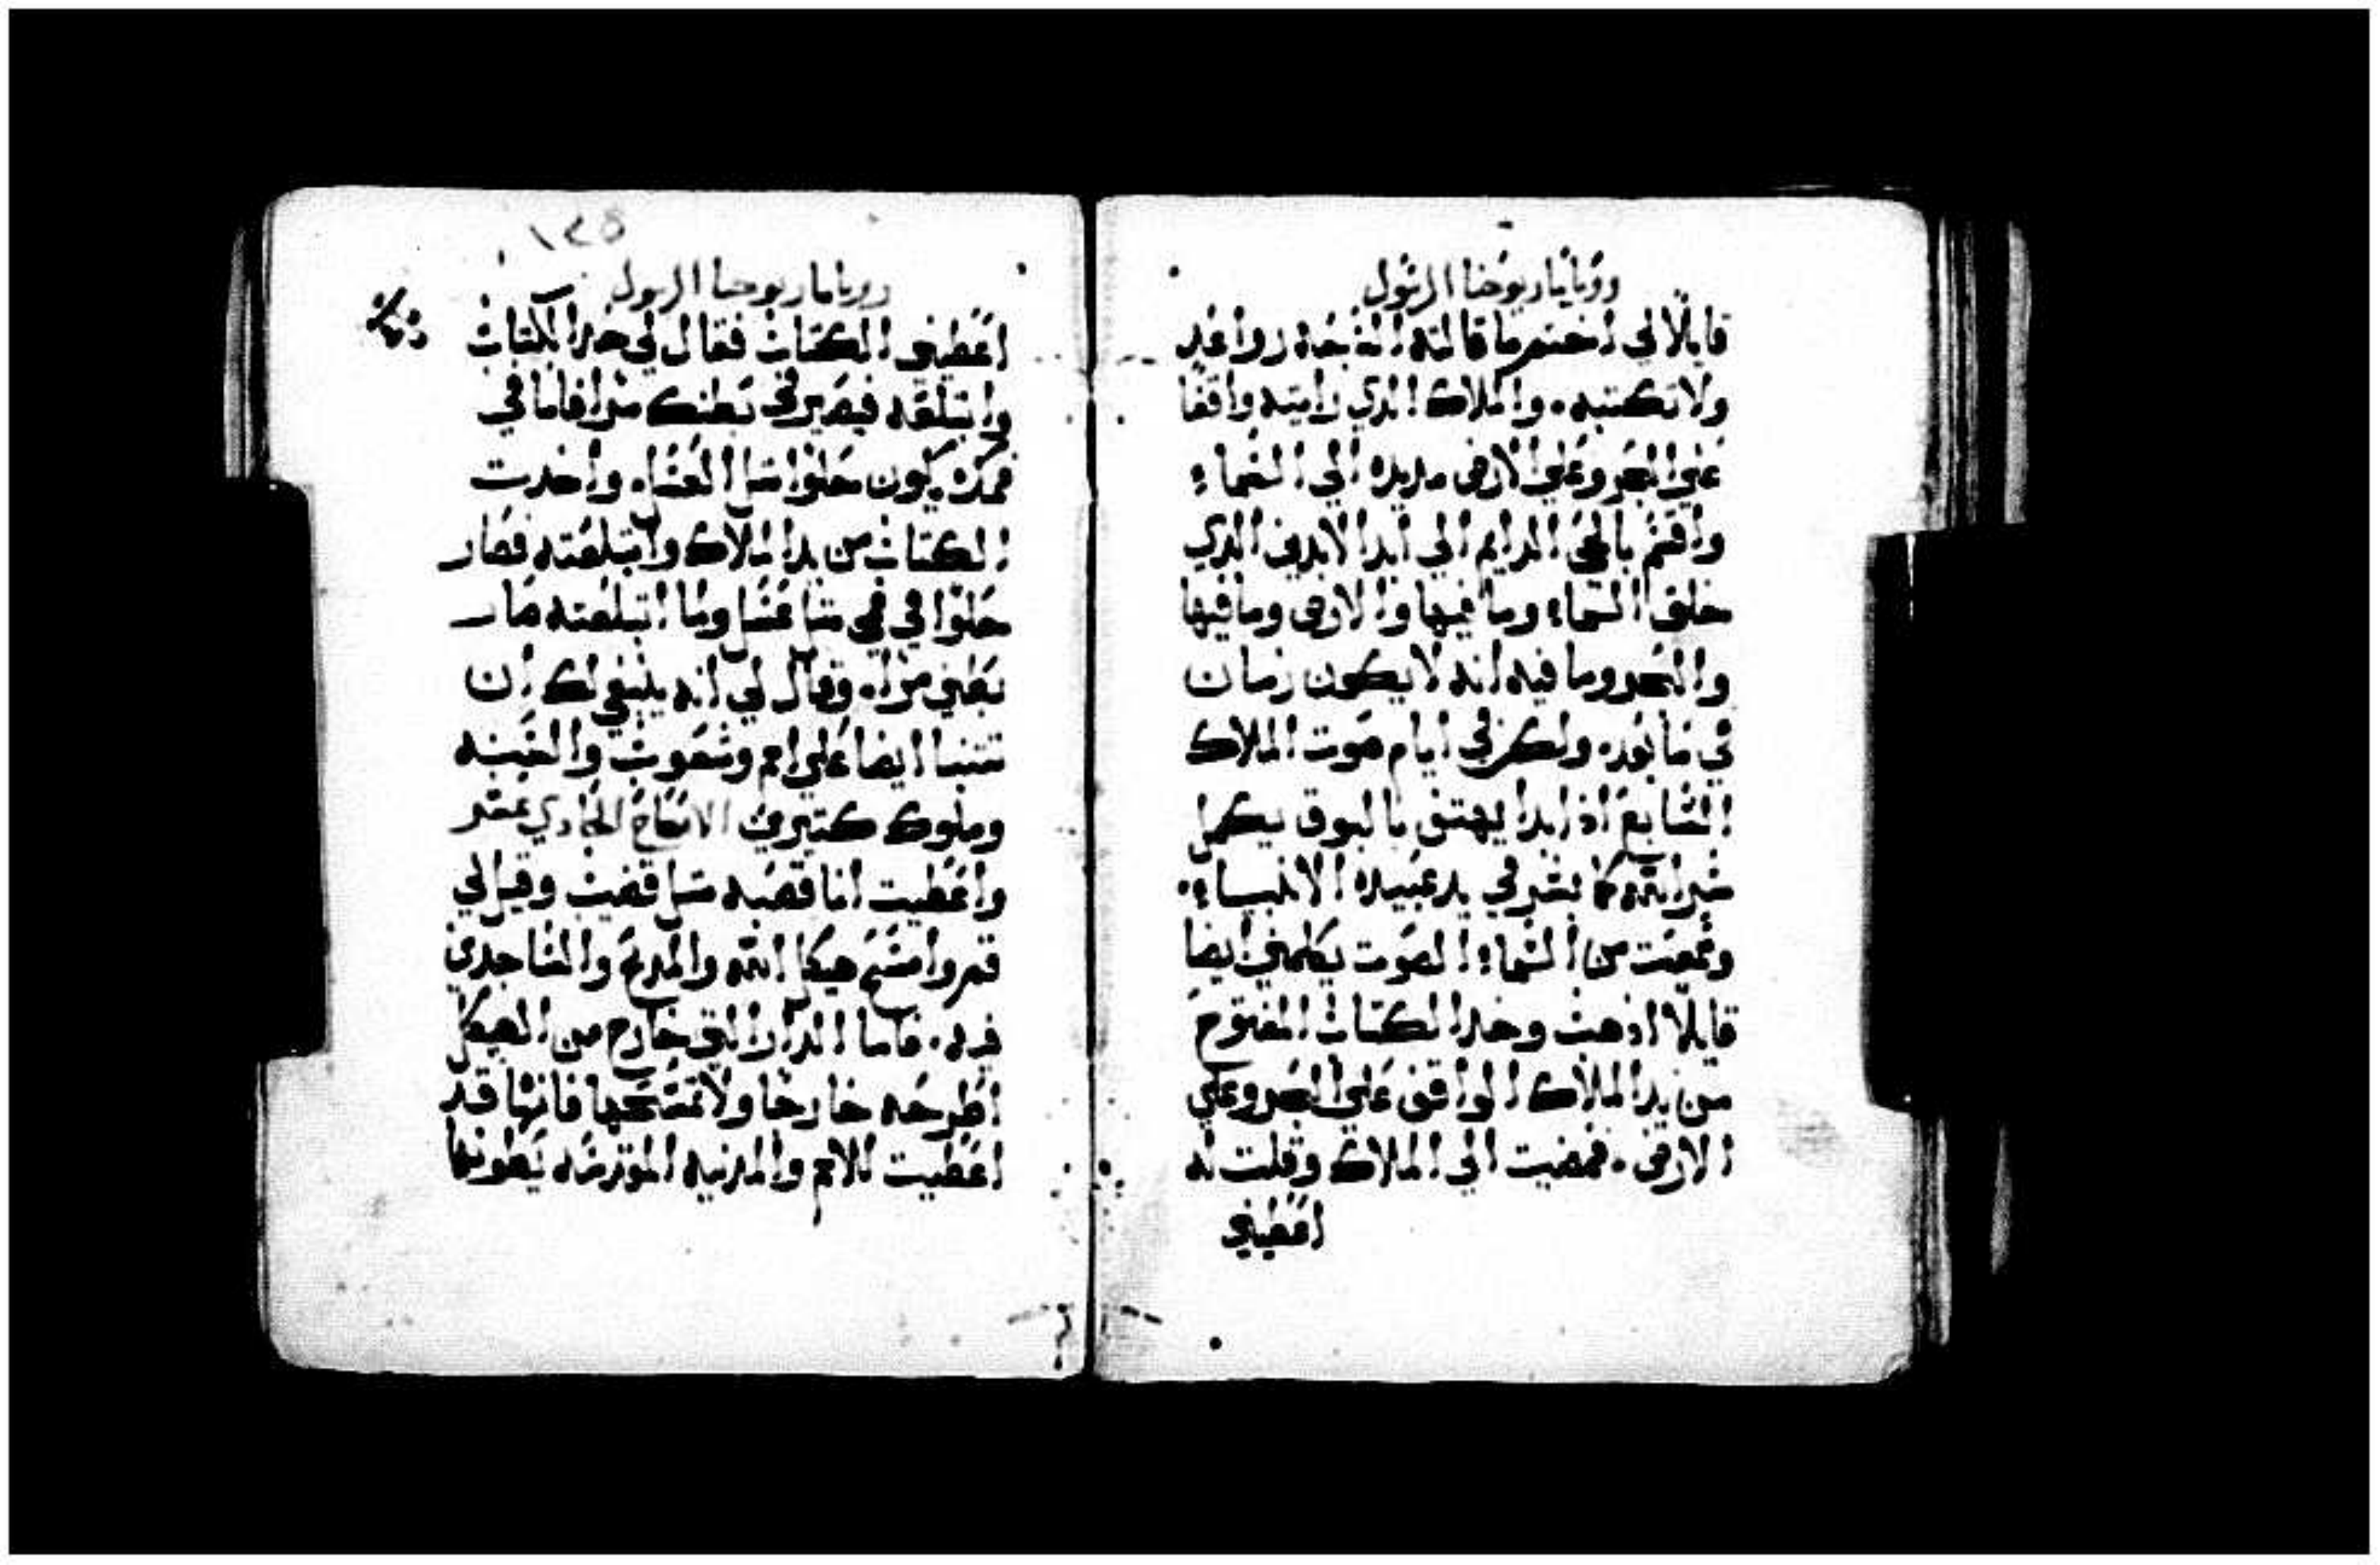 رويا ماريوحنا الرسول
قايلًا لي اختم ما قالته السبعه رواعد
ولا تكتبه٠ والملاك الدي رايته واقفًا
علي البحر وعلي الارض مد يده الي السماء
واقسم بالحي الدايم الي ابد الابدين الدي
خلق السماء وما فيها والارض وما فيها
والبحر وما فيه انه لا يكون زمان
في ما بعد٠ ولكن في ايام صوت الملاك
السابع اذا بدا يهتف بالبوق يكمل
سر الله كما بشر في يد عبيده الانبياء٠
وسمعت من السماء الصوت يكلمني ايضا
قايلًا اذهب وخد الكتاب المفتوح
من يد الملاك الواقف علي البحر وعلي
الارض٠ فمضيت الي الملاك وقلت له
اعطيني
١٤٥
رويا ماريوحنا الرسول
اعطيني الكتاب فقال لي خد الكتاب
وابتلعه فيصير في بطنك مرا فاما في
فمك يكون حلوا مثل العسل٠ واخدت
الكتاب من يد الملاك وابتلعته فصار
حلوا في فمي مثل عسل وما ابتلعته صار
بطني مرا٠ وقال لي انه ينبغي لك ان
تتنبا ايضا علي امم وشعوب والسنه
وملوك كتيرين الاصحاح الحادي عشر
واعطيت انا قصبه مثل قضيب وقيل لي
قم وامسح هيكل الله والمدبح والساجدين
فيه٠ فاما الدار التي خارج من الهيكل
اطرحه خارجا ولا تمسحها فانها قد
اعطيت للامم والمدنيه المقدسه يطونها